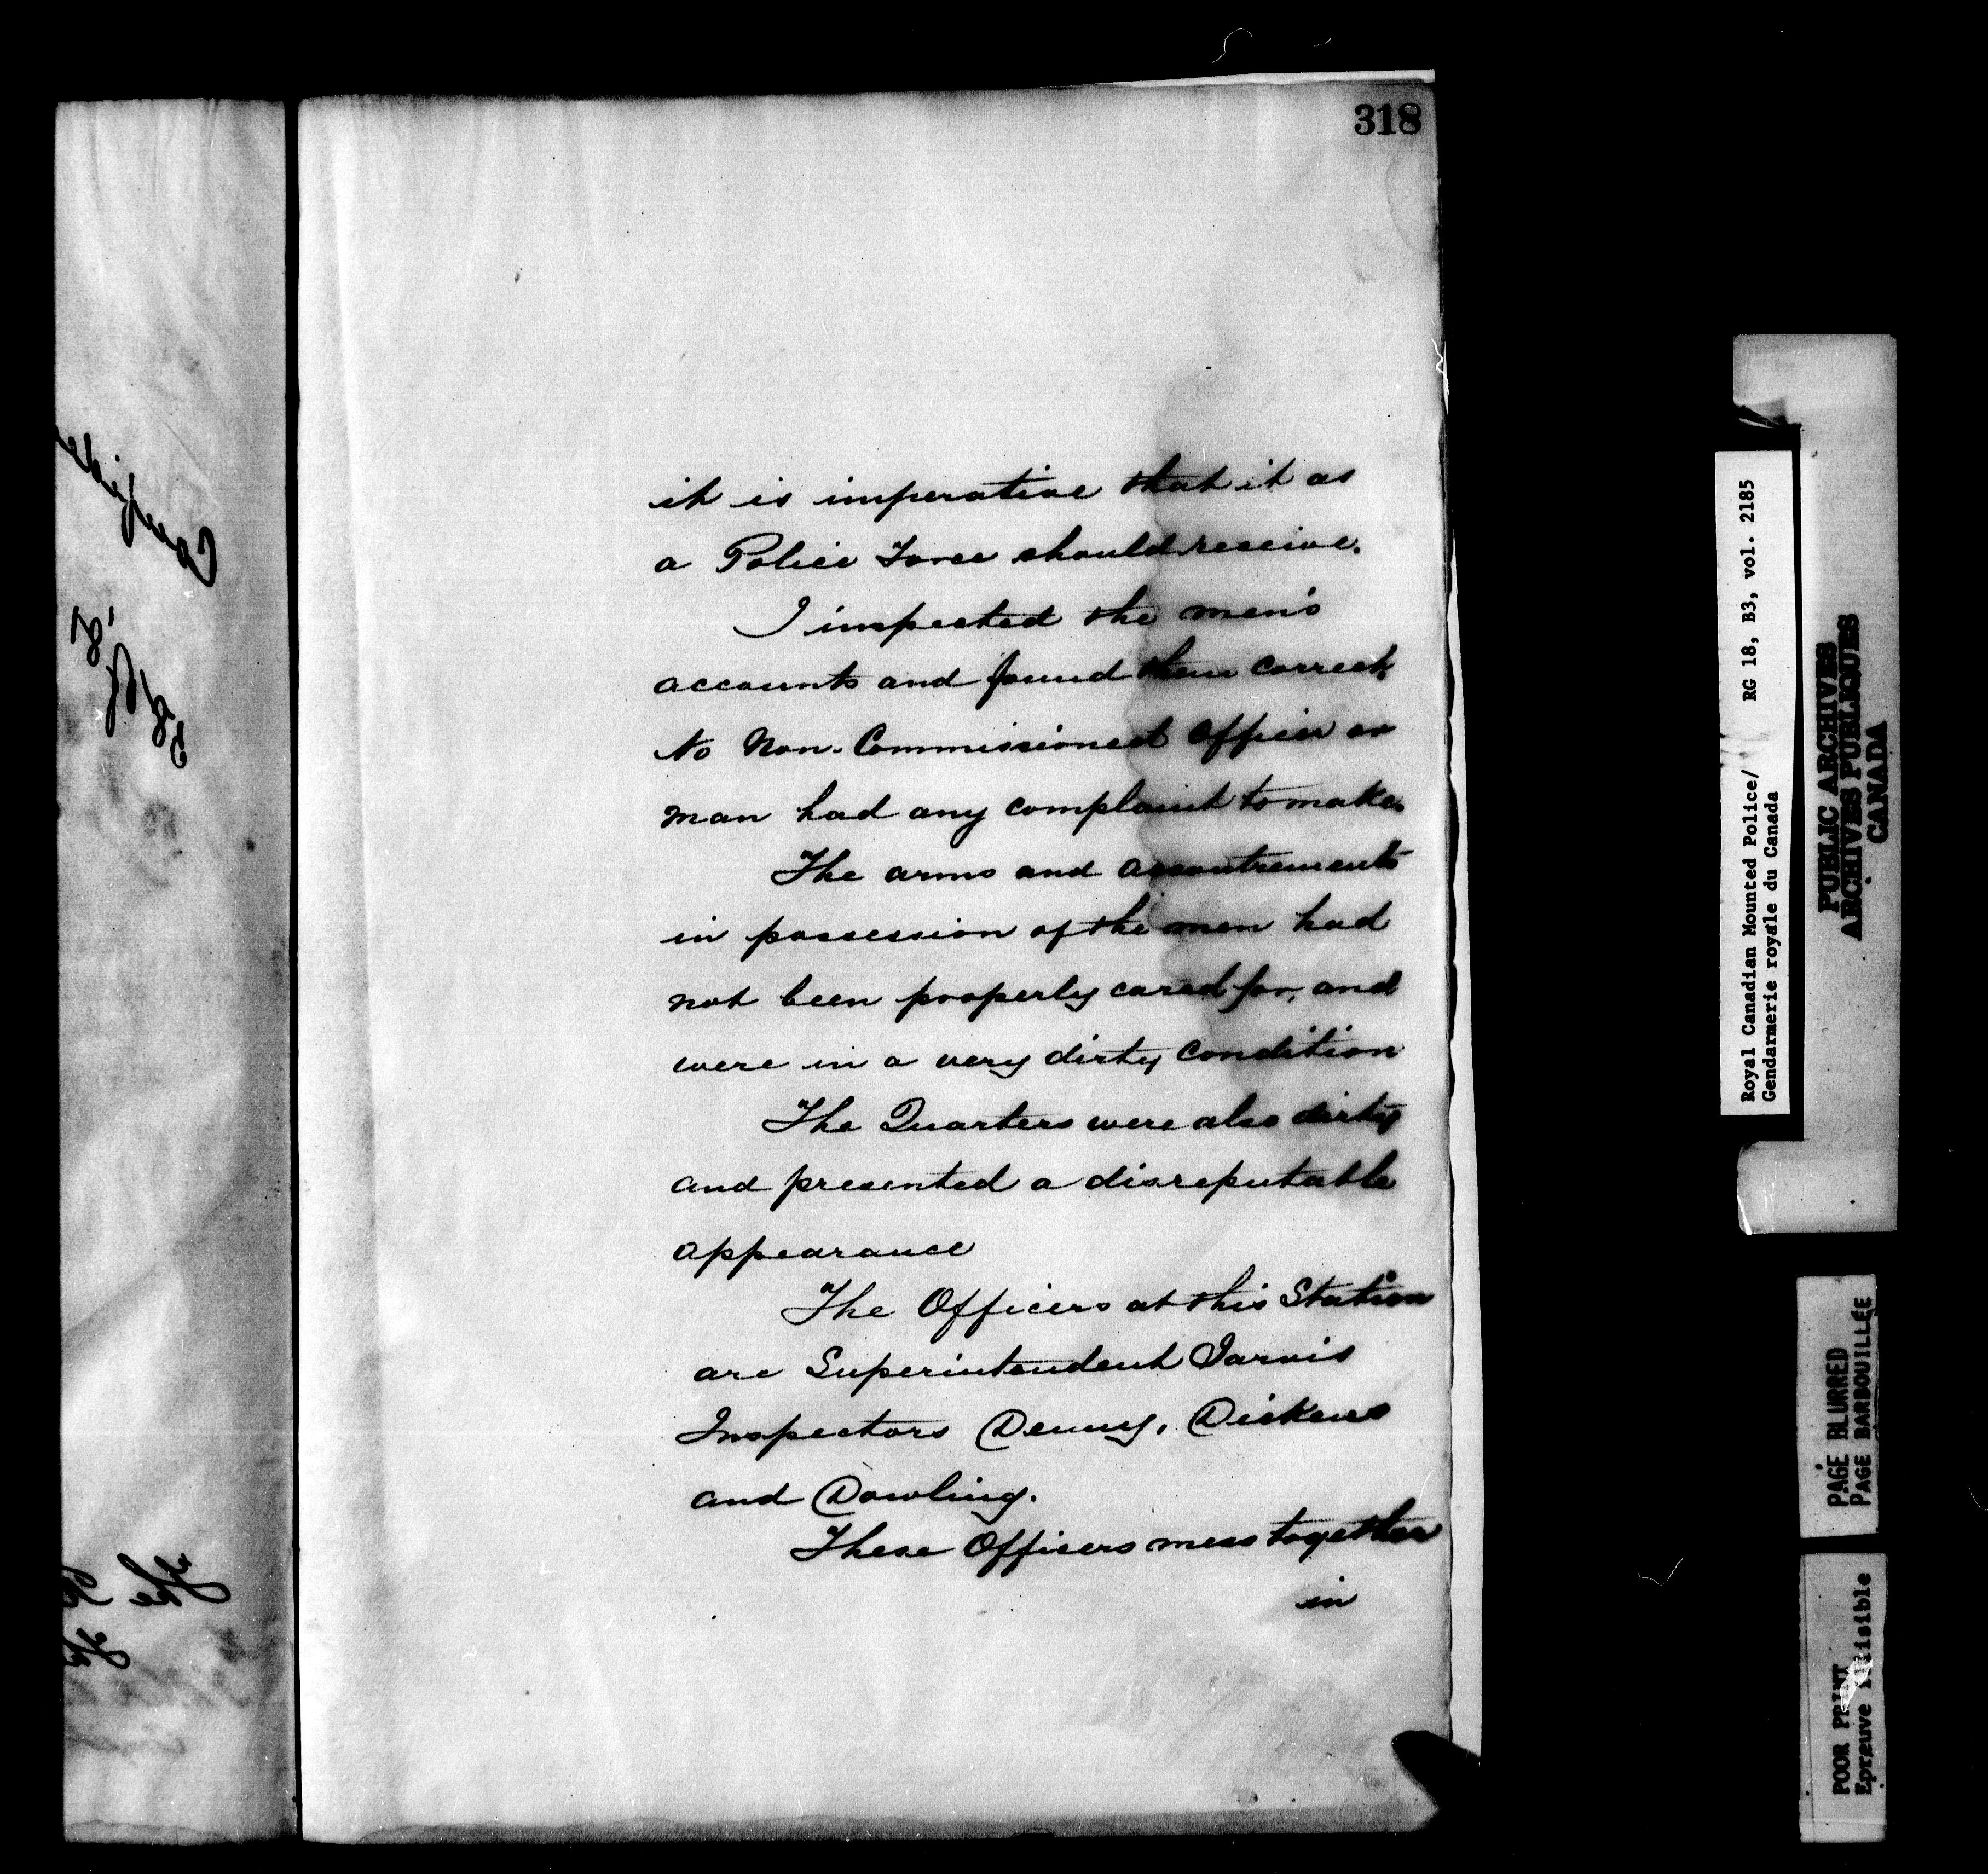 318
it is imperative that it as
a Police Force should receive.
I inspected the men's
accounts and found them correct,
No Non-Commissioned Officer or
man had any complaint to make.
The arms and accoutrements
in possession of the men had
not been properly cared for, and
were in a very dirty condition
The Quarters were also dirty
and presented a disreputable
appearance
The Officers at this Station
are Superintendent Jarvis
Inspectors Denny, Dickens
and Dowling.
These Officers mess together
in
Royal Canadian Mounted Police/ RG 18, B3, vol. 2185
Gendarmerie royale du Canada
PUBLIC ARCHIVES
ARCHIVES PUBLIQUES
CANADA
PAGE BLURRED
PAGE BARBOUILLÉE
POOR PRINT
Epreuve illisible